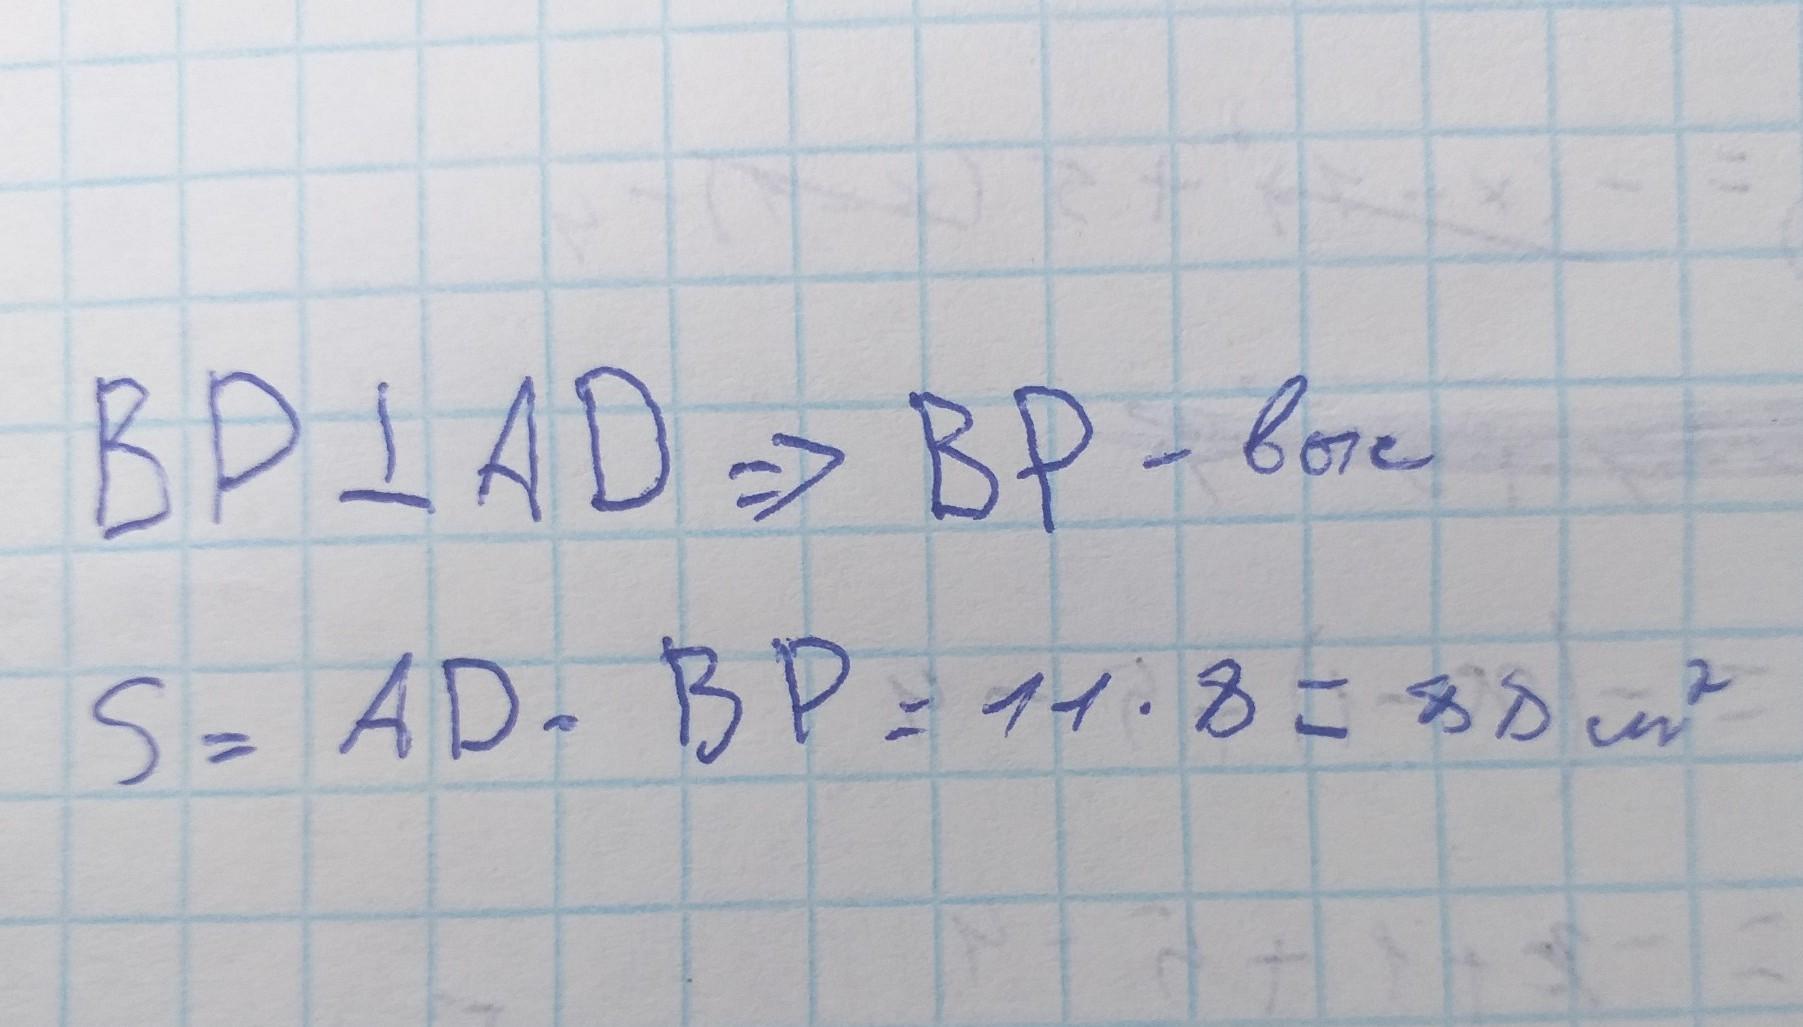 BP ⊥ AD => BP - выс
S = AD · BP = 11 · 8 = 88 см²